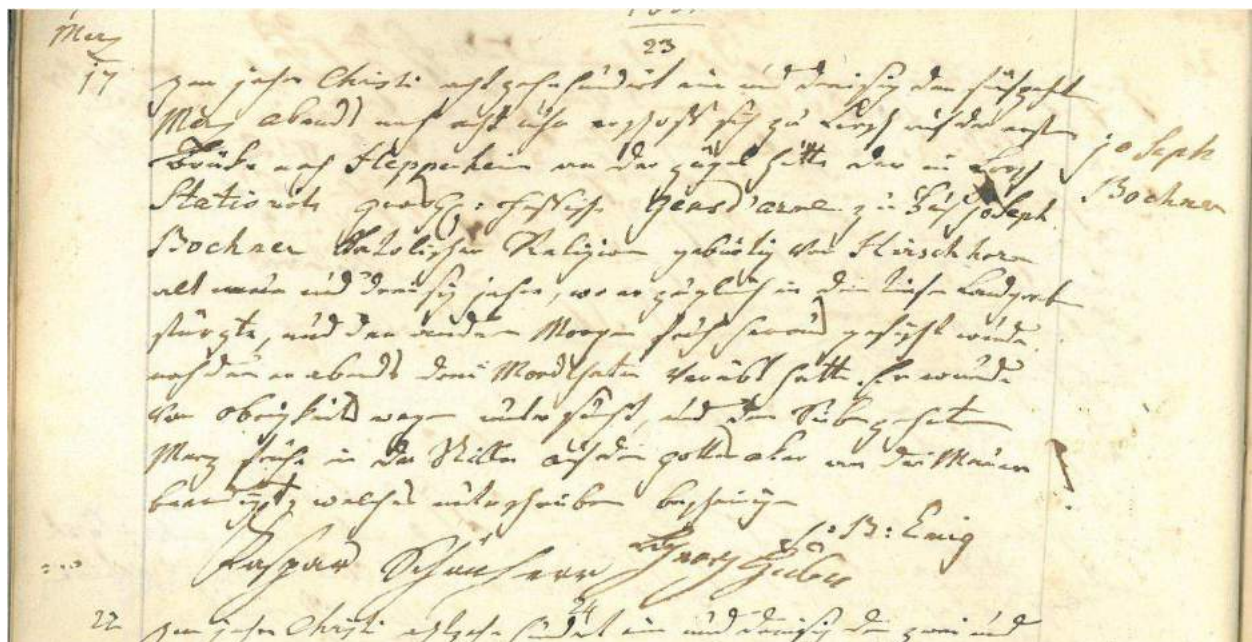 Merz
23
17
im jahr Christi achtzehnhundert ein und dreisig den fünfzehnt
Merz abends nach acht uhr erschoss sich zu Lorsch auf der ersten
Brücke nach Heppenheim an der Ziegelhütte der in Lorsch
stationirte grosh: hessische Gensd'arme zu Joseph
Bochner katolischer Religion gebürtig von Hirschhorn
alt und dreisig jahre, wo er zugleich in die Landgrab
stürzte, und den andern Morgen früh heraus gefischt wurde
nachdem er abends drei Mordthaten verübt hatte. Er wurde
von obrigkeits wegen untersucht, und den siebzehnten
Merz frühe in der Stille auf dem gottes aker an der Mauer
beerdigt, welches unterschrieben bescheinigen
Joseph
Bochner
Kaspar Schönherr Georg Huba
B: Emig
22
24
im jahr Christi achtzehnhundert ein und dreisig den zwei und